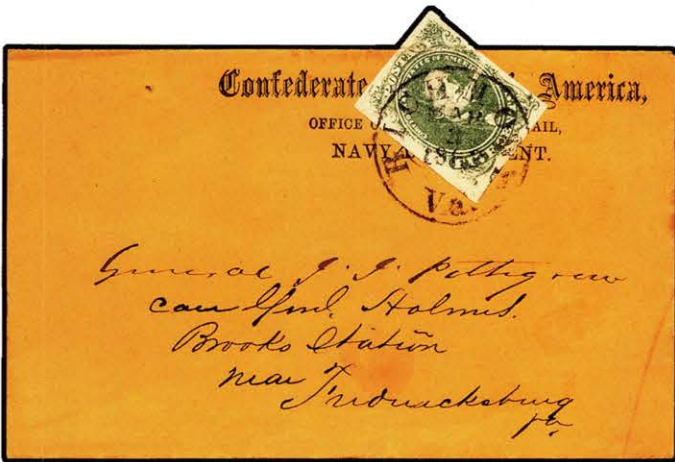 Confederate America,
OFFICE
NAVY
RICHMOND
Va.
General J. J. Pettigrew
care Genl. Holmes.
Brooks Station
near
Fredericksburg
Va.